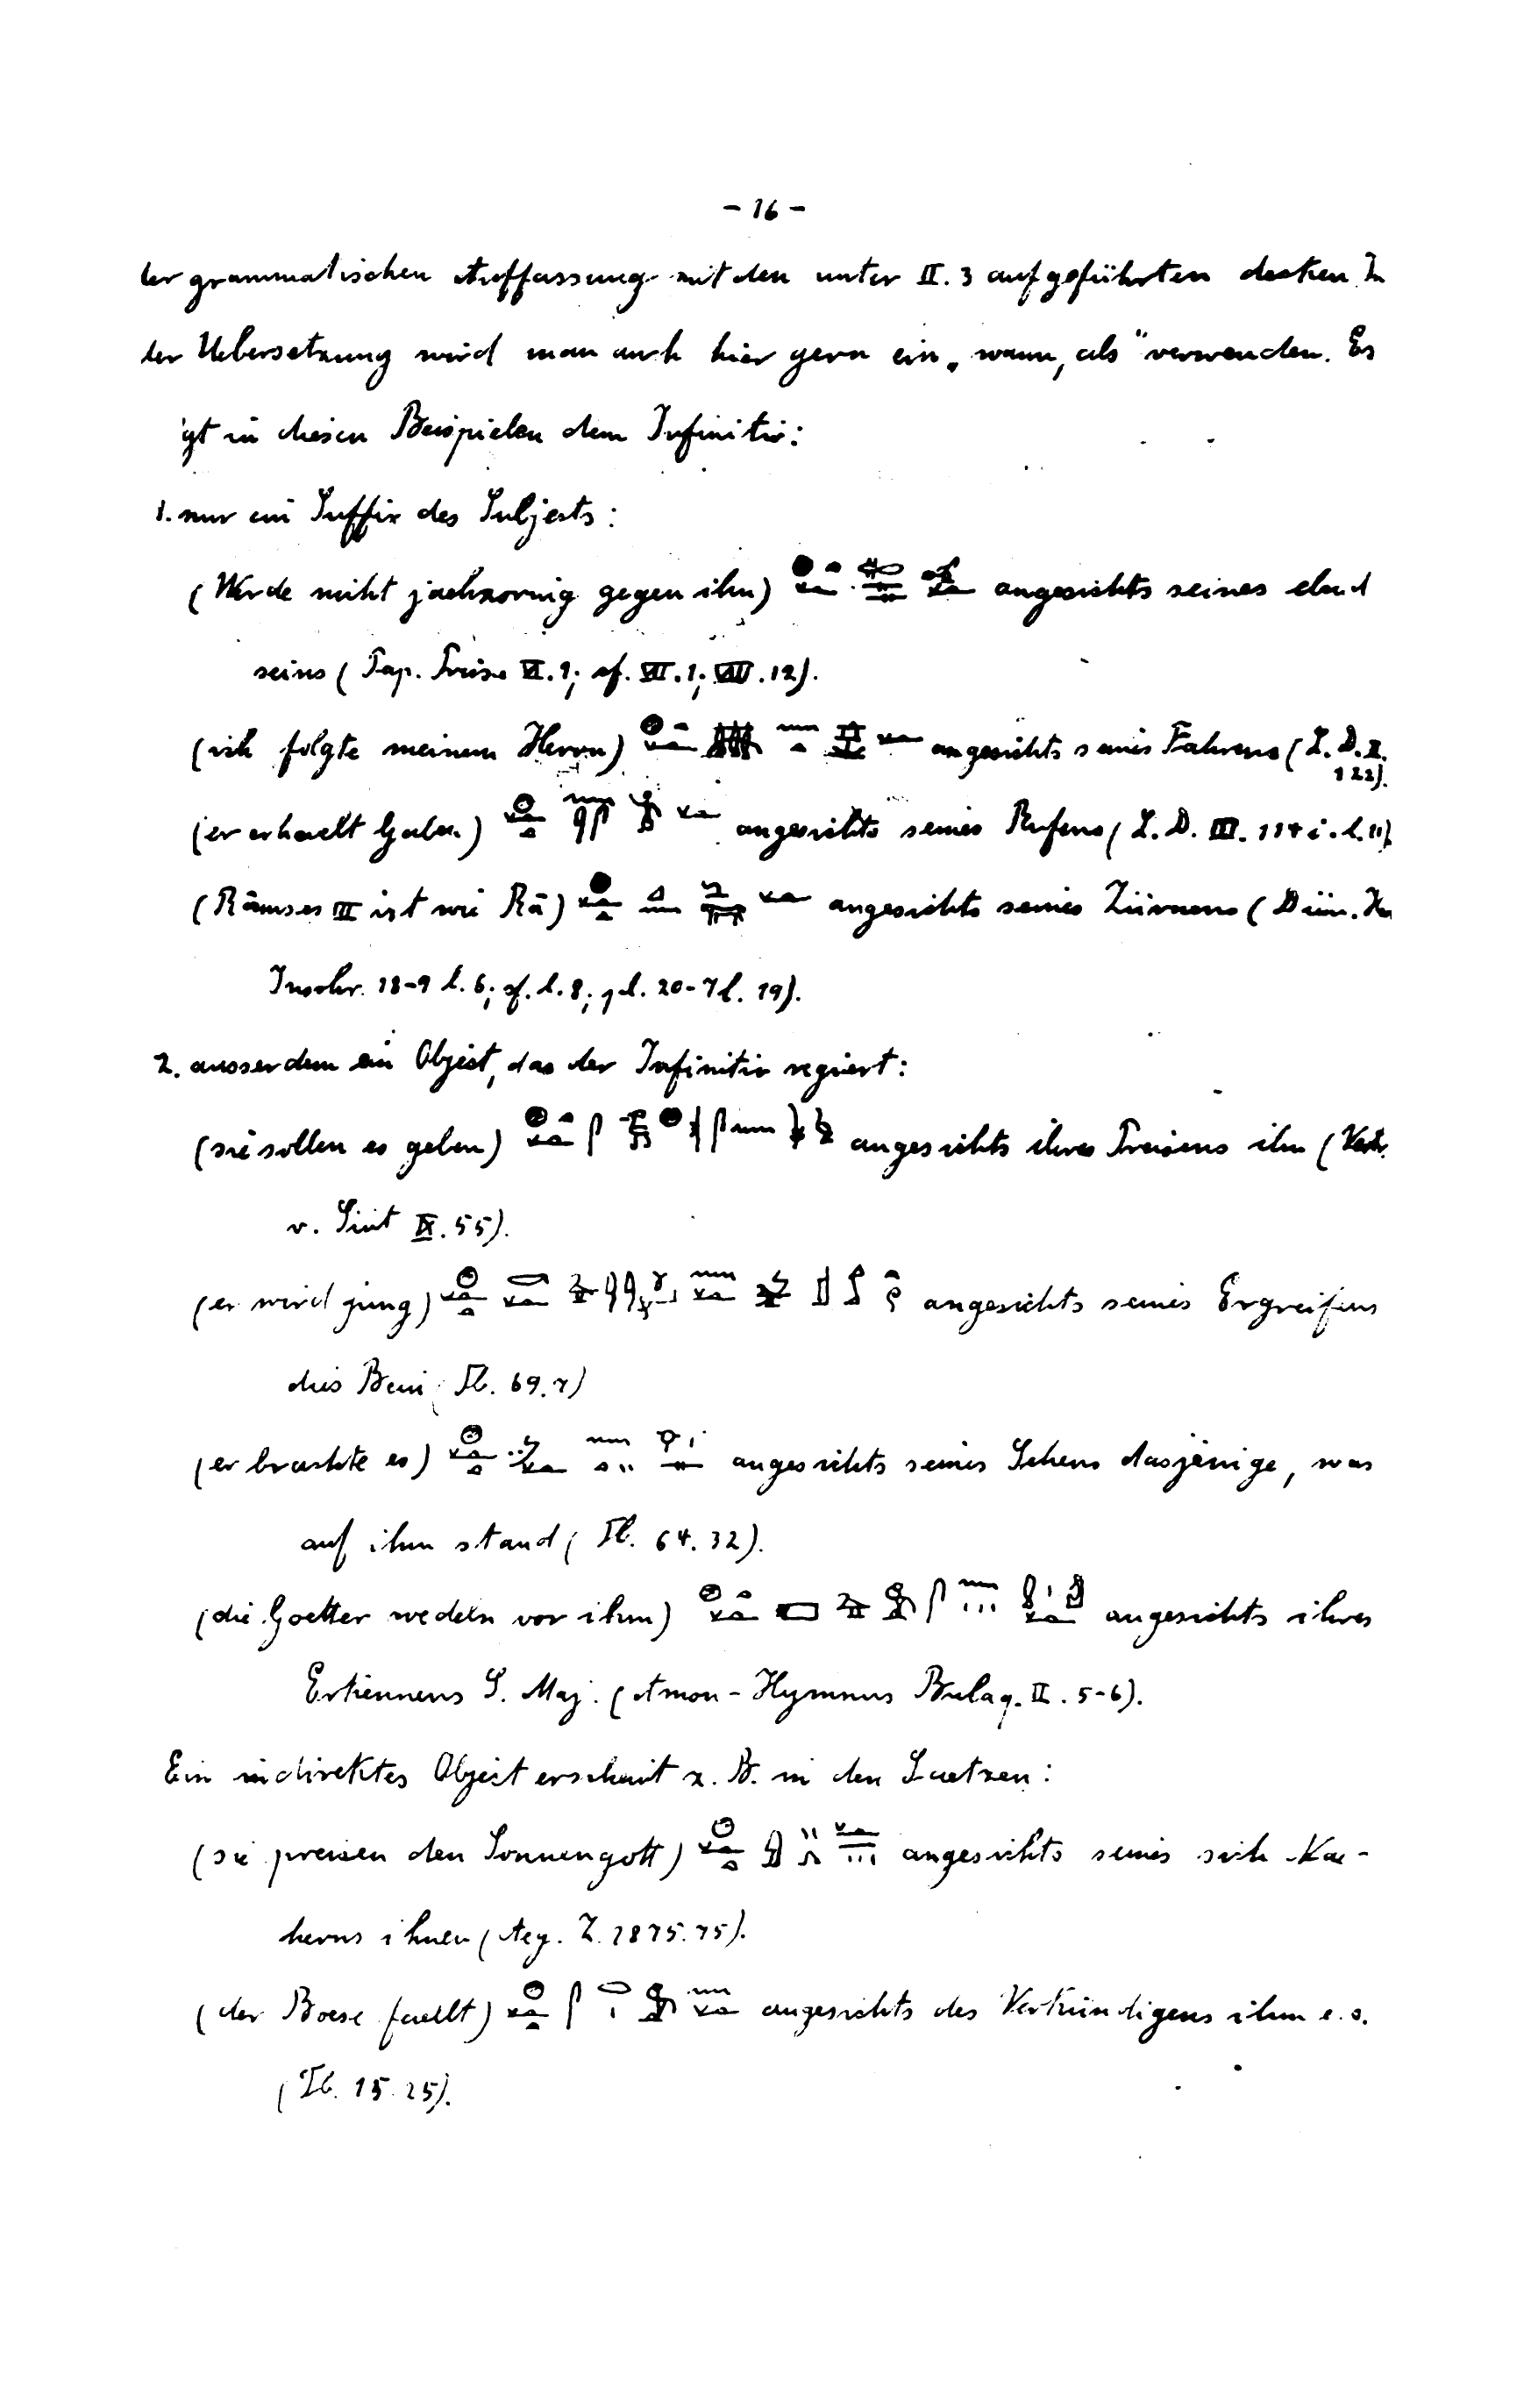 - 16 -
der grammatischen Auffassung mit den unter II. 3 aufgeführten decken In
der Uebersetzung wird man auch hier gern ein „wann, als" verwenden. Es
gt in diesen Beispielen dem Infinitiv:
1. nur ein Suffix des Subjects:
(Werde nicht jaehzornig gegen ihn) angesichts seines elend
seins (Pap. Prisse VI. 1; cf. VII. 1; VIII. 12).
(ich folgte meinem Herrn) angesichts seines Fahrens (L. D. II.
122).
(er erhaelt Gaben) angesichts seines Rufens (L. D. III. 114 i. l. 11)
(Rāmses III ist wie Rā) angesichts seines Zürnens (Düm. H
Inschr. 18-9 l. 6; cf. l. 8; l. 20-7 l. 19).
2. ausserdem ein Object, das der Infinitiv regiert:
(sie sollen es geben) angesichts ihres Preisens ihn (Vertr.
v. Siut IX. 55).
(er wird jung) angesichts seines Ergreifens
dies Bein Tb. 69. 7)
(er brachte es) angesichts seines Sehens dasjenige, was
auf ihm stand (Tb. 64. 32).
(die Goetter wedeln vor ihm) angesichts ihres
Erkennens S. Maj. (Amon-Hymnus Bulaq. II. 5-6).
Ein indirektes Object erscheint z. B. in den Saetzen:
(sie preisen den Sonnengott) angesichts seines sich Nae-
herns ihnen (Aeg. Z. 1875. 75).
(der Boese faellt) angesichts des Verkündigens ihm e. s.
(Tb. 15. 25).